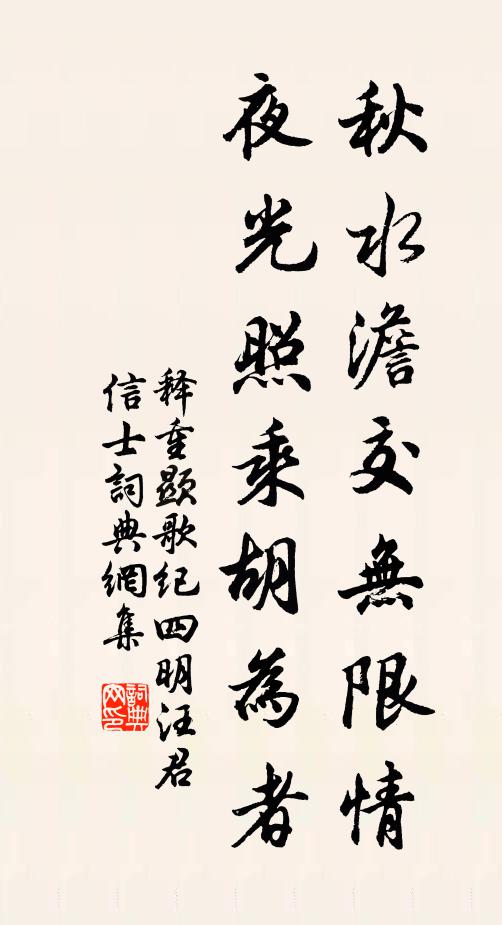 秋水澹交無限情
夜光照乘胡為者
释重顯歌纪四明汪君
信士詞典網集
詞典网印